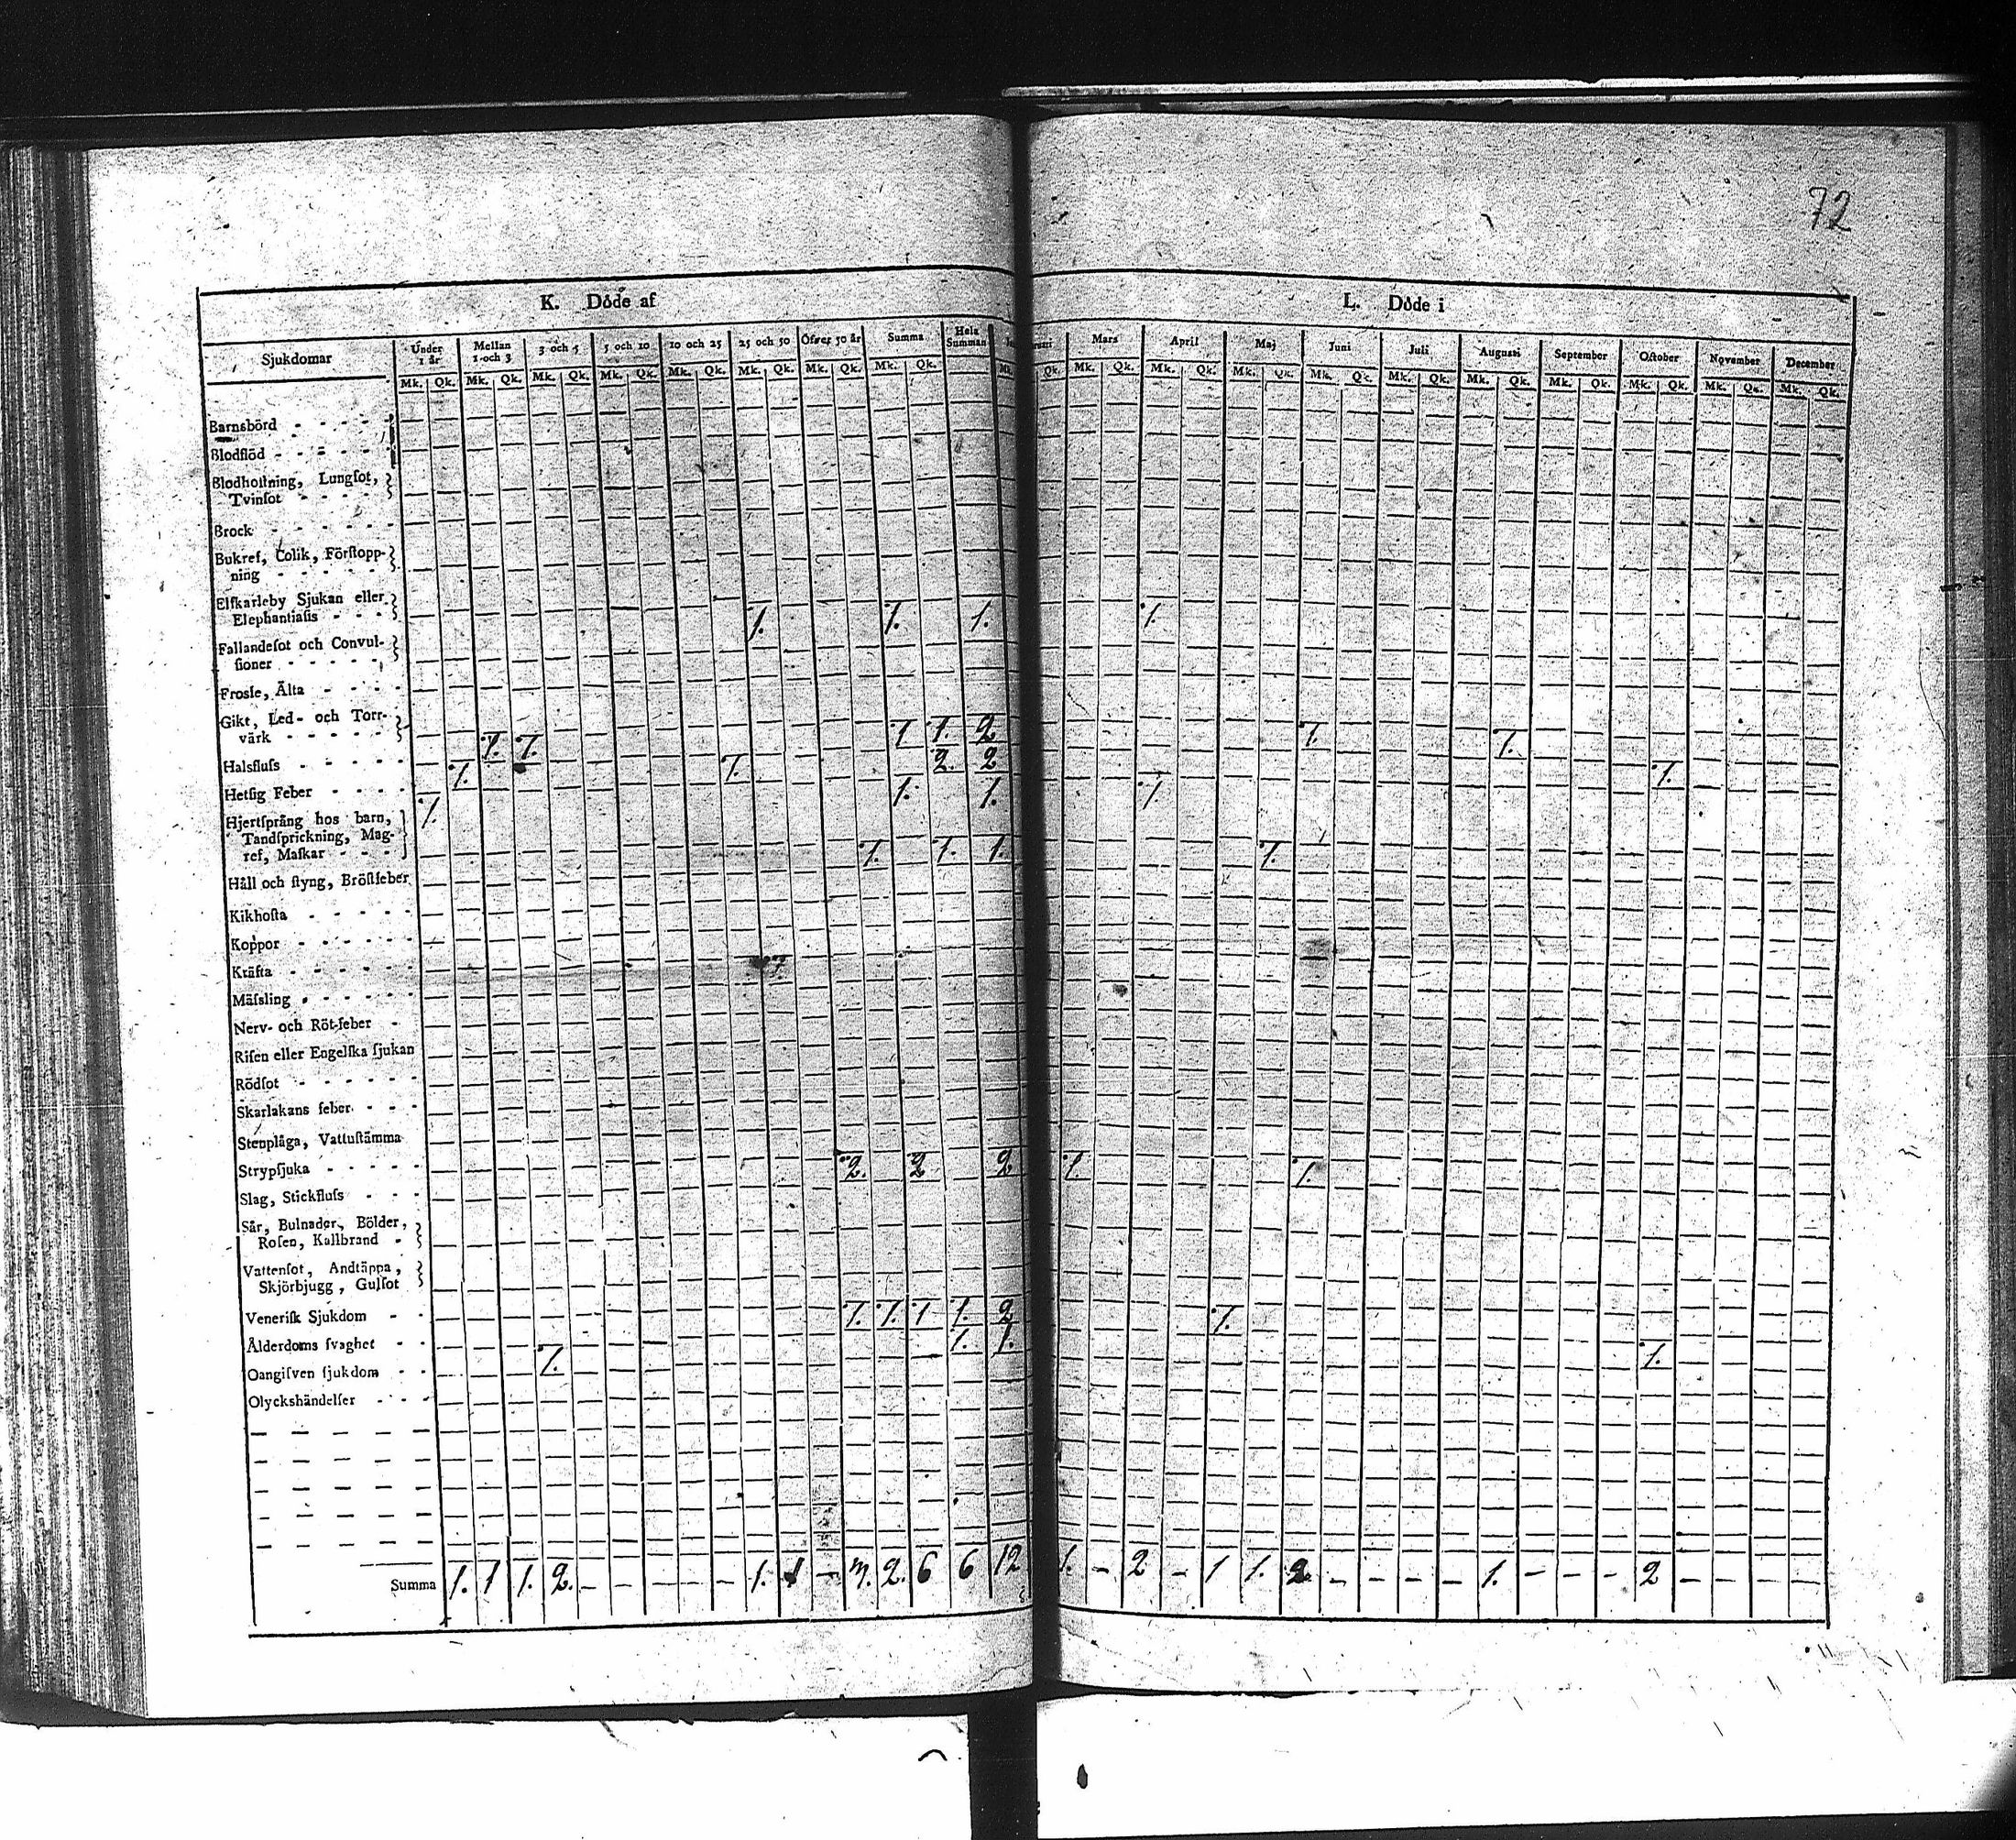 72
K. Döde af
L. Döde i
Sjukdomar
Under 1 år
Mellan 1 och 3
3 och 5
5 och 10
10 och 25
25 och 50
Öfver 50 år
Summa
Hela Summan
Mars
April
Maj
Juni
Juli
Augusti
September
October
November
December
Mk. Qk. Mk. Qk. Mk. Qk. Mk. Qk. Mk. Qk. Mk. Qk. Mk. Qk. Mk. Qk. Mk.
Qk. Mk. Qk. Mk. Qk. Mk. Qk. Mk. Qk. Mk. Qk. Mk. Qk. Mk. Qk. Mk. Qk. Mk. Qk. Mk. Qk.
Barnsbörd - - - - -
Blodflöd - - - - - -
Blodhoſtning, Lungſot,
Tvinſot - - - -
Brock - - - - - -
Bukref, Colik, Förſtopp-
ning - - - - -
Elfkarleby Sjukan eller
Elephantiaſis - - - 1. 1. 1. 1.
Fallandeſot och Convul-
ſioner - - - - -
Frosſe, Älta - - - -
Gikt, Led- och Torr-
värk - - - - - 1. 1. 1 1. 2 1. 1.
Halsfluſs - - - - - 1. 1. 2. 2 1.
Hetſig Feber - - - - 1. 1. 1. 1.
Hjertſprång hos barn,
Tandſprickning, Mag-
ref, Maſkar - - - 1. 1. 1. 1.
Håll och ſtyng, Bröſtfeber
Kikhoſta - - - - -
Koppor - - - - - -
Kräfta - - - - - -
Mäſsling - - - - - -
Nerv- och Röt-feber -
Riſen eller Engelſka ſjukan
Rödſot - - - - - -
Skarlakans feber - - -
Stenplåga, Vattuſtämma
Strypſjuka - - - - - 2. 2 2 1. 1.
Slag, Stickfluſs - - -
Sår, Bulnader, Bölder,
Roſen, Kallbrand -
Vattenſot, Andtäppa,
Skjörbjugg, Gulſot
Veneriſk Sjukdom - - 1. 1. 1 1. 2 1.
Ålderdoms ſvaghet - - 1. 1. 1.
Oangifven ſjukdom - - 1.
Olyckshändelſer - - -
Summa 1. 1 1. 2. - - - - - 1. 1 - 2. 6 6 12 1. - 2 - 1 1. 2 - - - - 1. - - - 2 - - - -